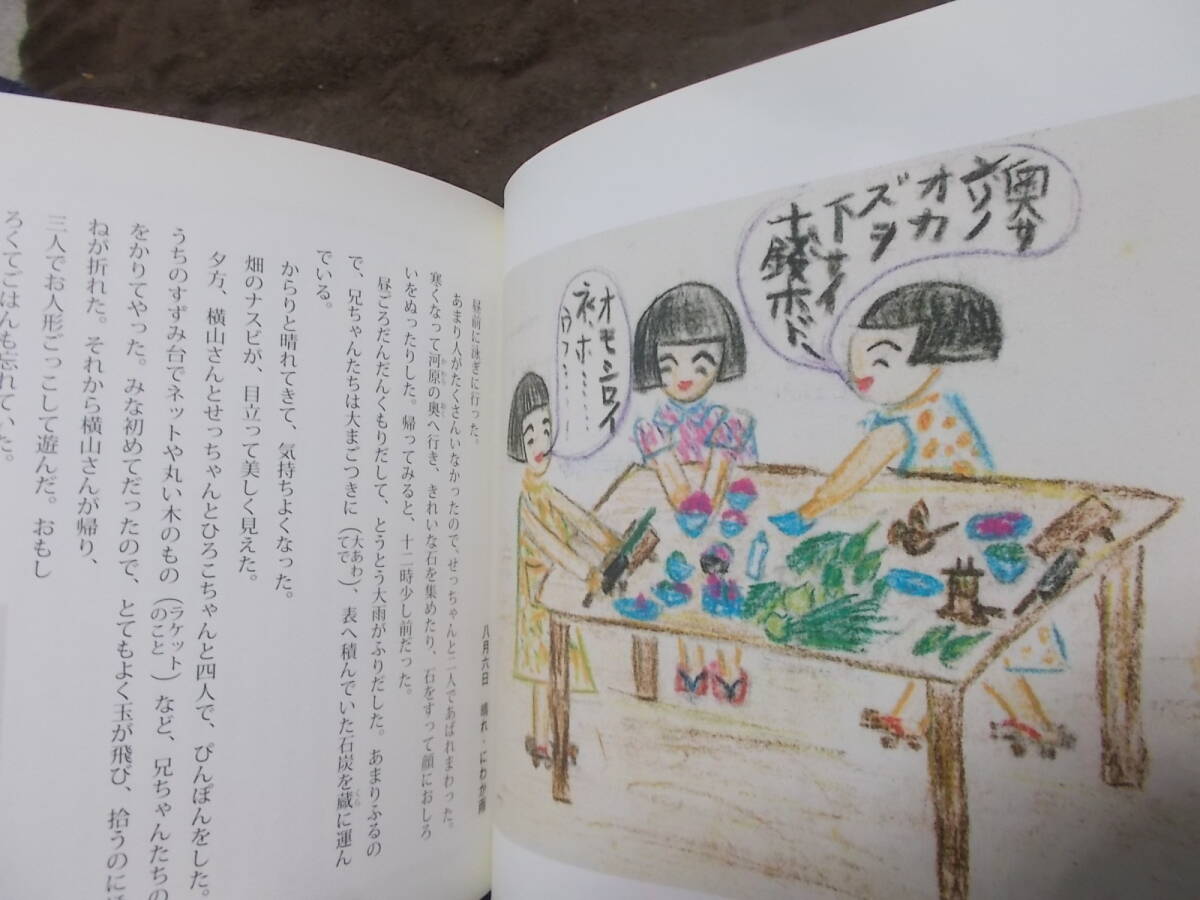 奥サ
ン、ソノ
オカ
ズヲ
下サイ
十銭ホド、
オモシロイ
ネ、ホ……
ウフ……
八月六日　晴れ・にわか雨
昼前に泳ぎに行った。
あまり人がたくさんいなかったので、せっちゃんと二人であばれまわった。
寒くなって河原の奥へ行き、きれいな石を集めたり、石をすって顔におしろ
いをぬったりした。帰ってみると、十二時少し前だった。
昼ごろだんだんくもりだして、とうとう大雨がふりだした。あまりふるの
で、兄ちゃんたちは大まごつきに（大あわてで）、表へ積んでいた石炭を蔵に運ん
でいる。
からりと晴れてきて、気持ちよくなった。
畑のナスビが、目立って美しく見えた。
夕方、横山さんとせっちゃんとひろこちゃんと四人で、ぴんぽんをした。
うちのすずみ台でネットや丸い木のもの（ラケットのこと）など、兄ちゃんたちの
をかりてやった。みな初めてだったので、とてもよく玉が飛び、拾うのに
ねが折れた。それから横山さんが帰り、
三人でお人形ごっこして遊んだ。おもし
ろくてごはんも忘れていた。